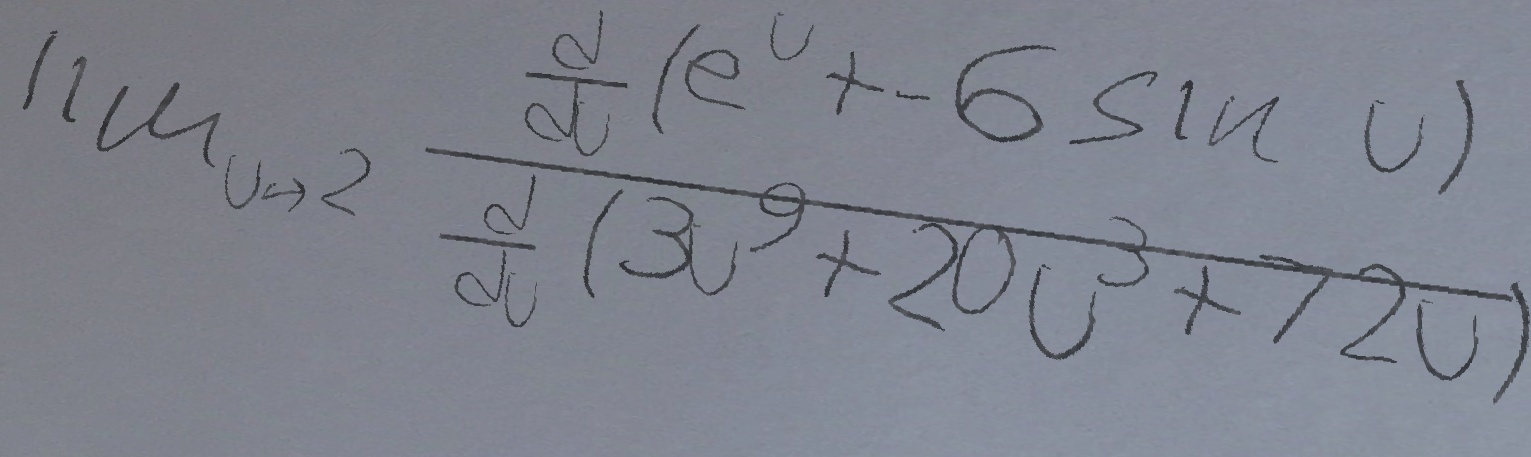 \lim_{u \to 2} \frac{\frac{d}{du}(e^u + -6 \sin u)}{\frac{d}{du}(3u^9 + 20u^3 + 72u)}